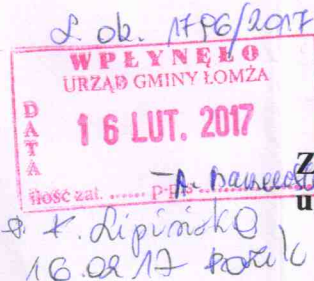 L. ob. 1796/2017
WPŁYNĘŁO
URZĄD GMINY ŁOMŻA
DATA
16 LUT. 2017
Ilość zał. ...... p-pis
Z
u
K. Lipińska
16.02.17